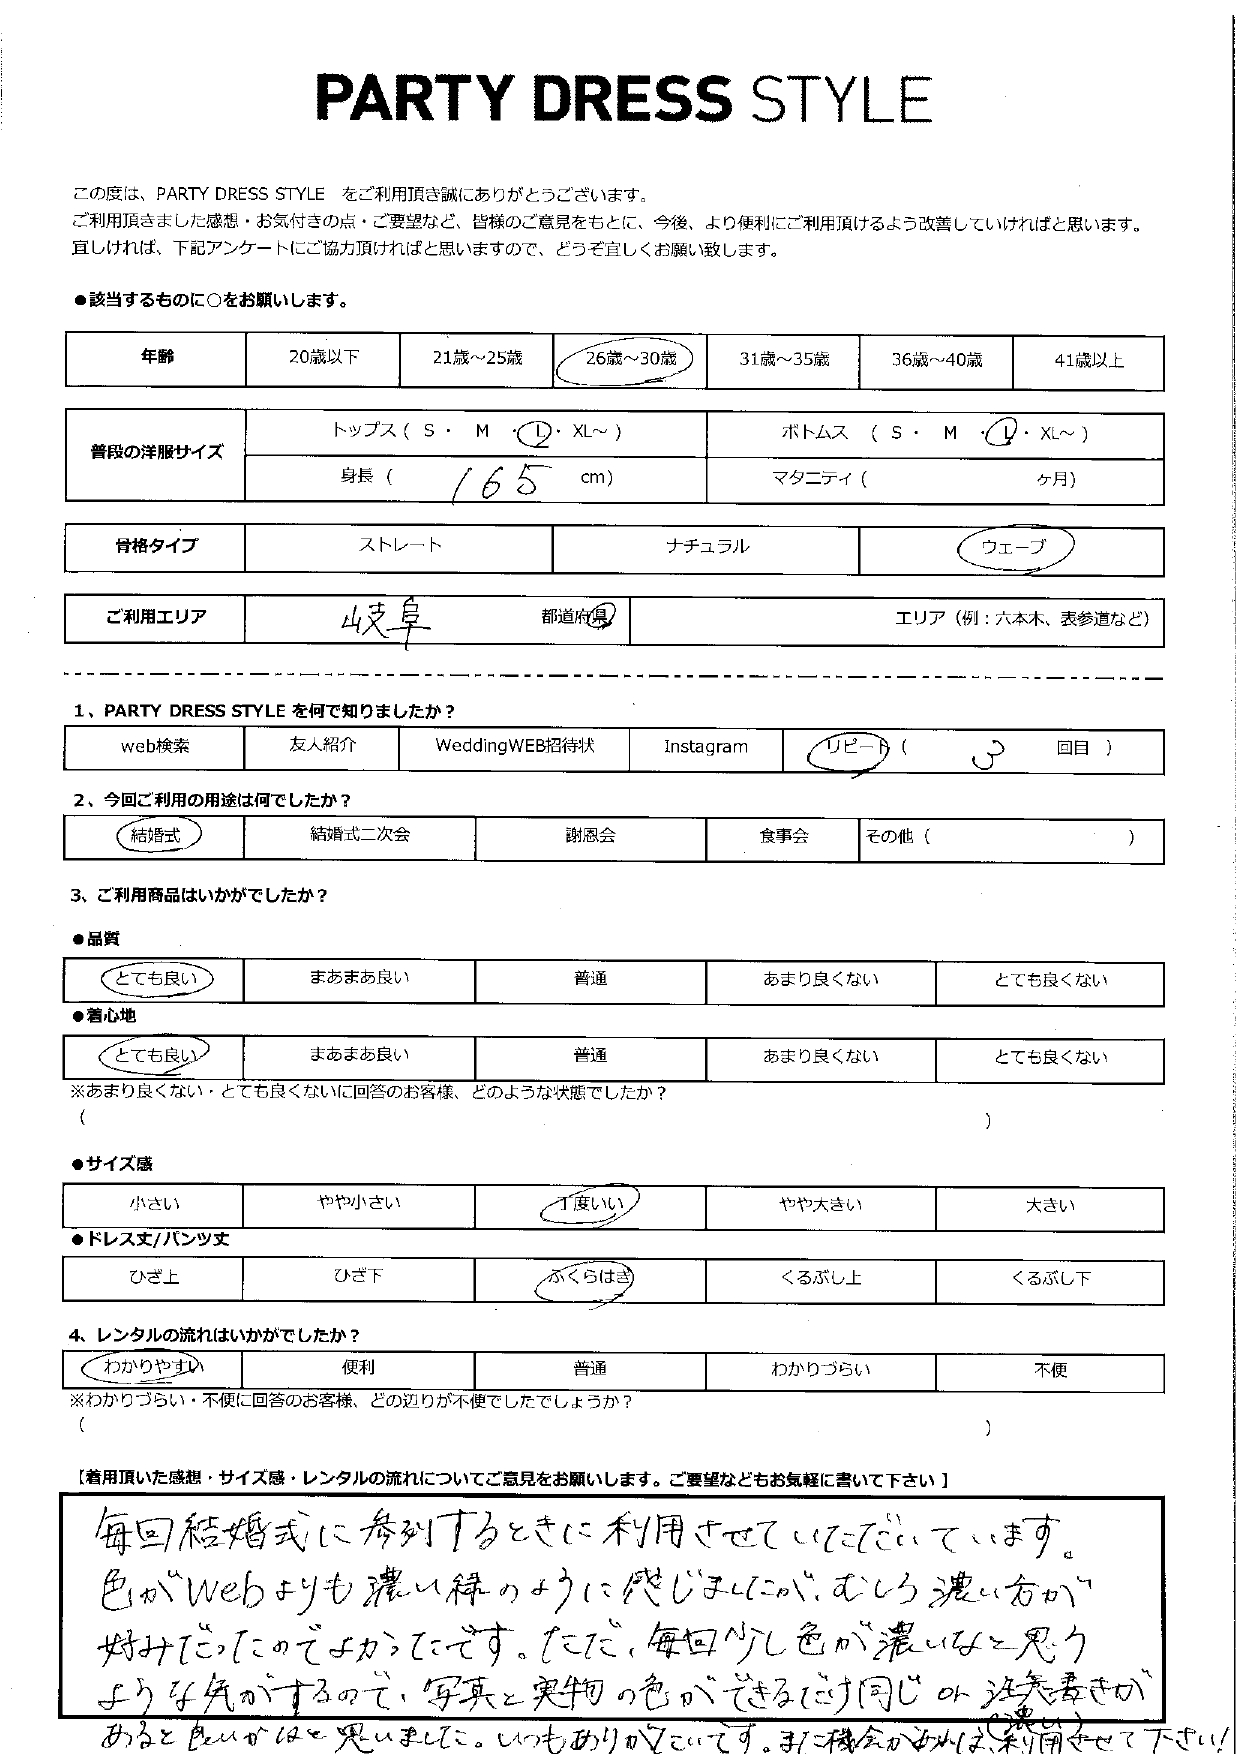 PARTY DRESS STYLE
この度は、PARTY DRESS STYLE をご利用頂き誠にありがとうございます。
ご利用頂きました感想・お気付きの点・ご要望など、皆様のご意見をもとに、今後、より便利にご利用頂けるよう改善していければと思います。
宜しければ、下記アンケートにご協力頂ければと思いますので、どうぞ宜しくお願い致します。
●該当するものに○をお願いします。
年齢 20歳以下 21歳～25歳 26歳～30歳 31歳～35歳 36歳～40歳 41歳以上
普段の洋服サイズ トップス ( S ・ M ・ L ・ XL～ ) ボトムス ( S ・ M ・ L ・ XL～ )
身長 ( 165 cm) マタニティ ( ケ月)
骨格タイプ ストレート ナチュラル ウェーブ
ご利用エリア 岐阜 都道府県 エリア（例：六本木、表参道など）
1、PARTY DRESS STYLE を何で知りましたか？
web検索 友人紹介 WeddingWEB招待状 Instagram リピート ( 3 回目 )
2、今回ご利用の用途は何でしたか？
結婚式 結婚式二次会 謝恩会 食事会 その他 ( )
3、ご利用商品はいかがでしたか？
●品質
とても良い まあまあ良い 普通 あまり良くない とても良くない
●着心地
とても良い まあまあ良い 普通 あまり良くない とても良くない
※あまり良くない・とても良くないに回答のお客様、どのような状態でしたか？
( )
●サイズ感
小さい やや小さい 丁度いい やや大きい 大きい
●ドレス丈/パンツ丈
ひざ上 ひざ下 ふくらはぎ くるぶし上 くるぶし下
4、レンタルの流れはいかがでしたか？
わかりやすい 便利 普通 わかりづらい 不便
※わかりづらい・不便に回答のお客様、どの辺りが不便でしたでしょうか？
( )
【着用頂いた感想・サイズ感・レンタルの流れについてご意見をお願いします。ご要望などもお気軽に書いて下さい】
毎回結婚式に参列するときに利用させていただいています。
色がWebよりも濃い緑のように感じましたが、むしろ濃い方が
好みだったのでよかったです。ただ、毎回少し色が濃いなと思う
ような気がするので、写真と実物の色ができるだけ同じ or 注意書きが
(濃い)
あると良いかなと思いました。いつもありがたいです。また機会があれば、利用させて下さい！